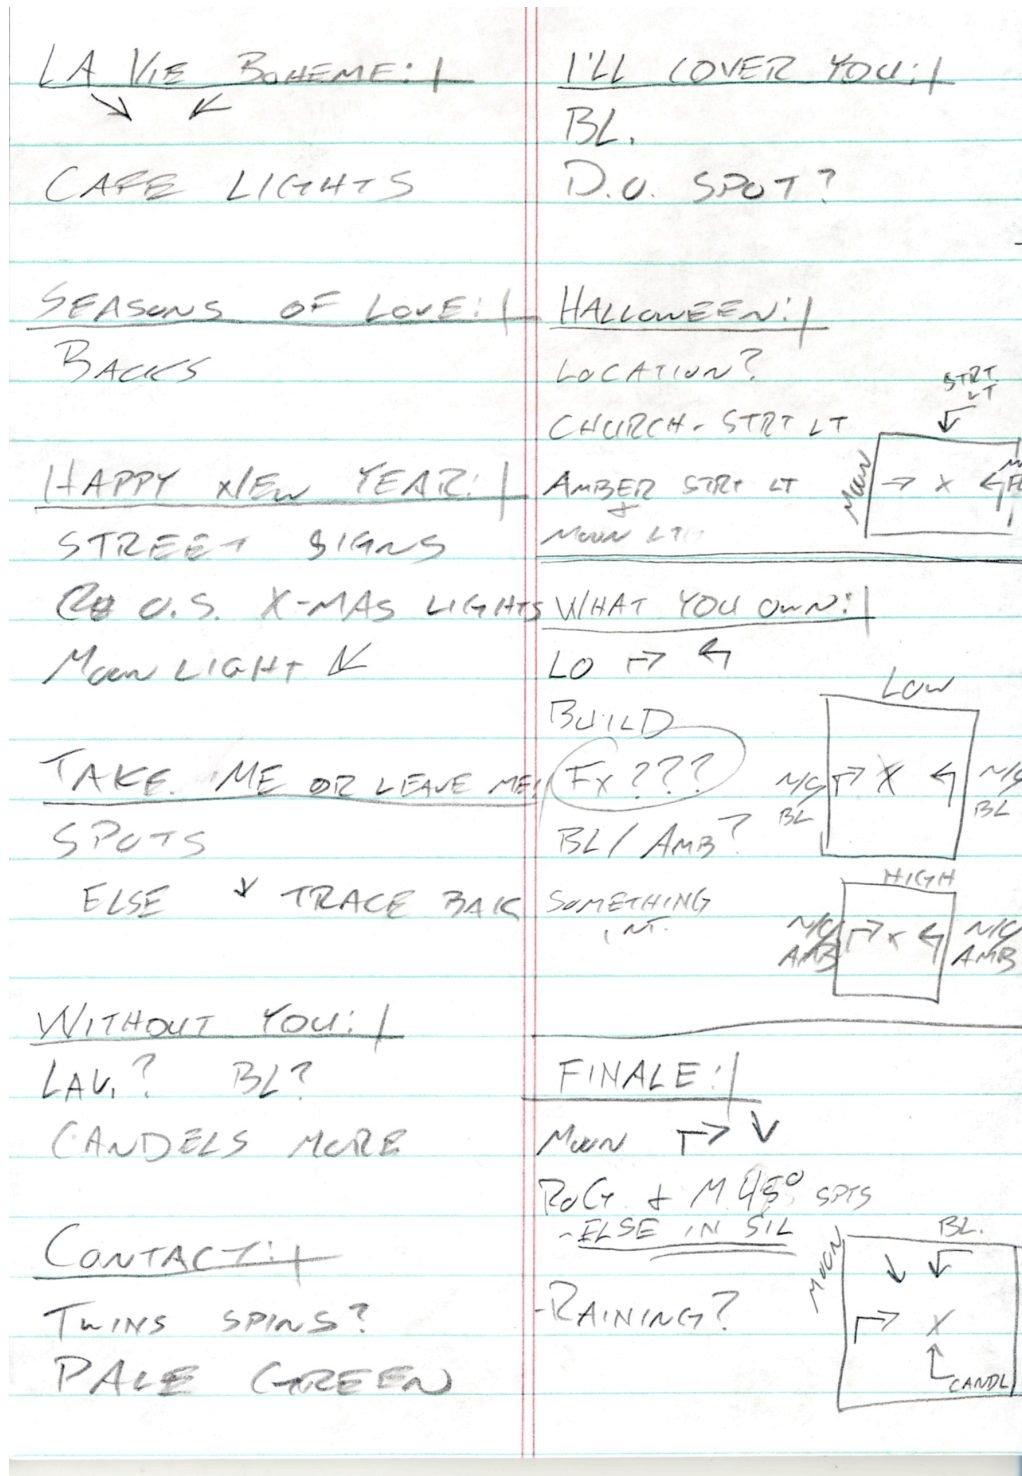 LA VIE BOHEME:
CAFE LIGHTS
SEASONS OF LOVE:
BACKS
HAPPY NEW YEAR:
STREET SIGNS
O.S. X-MAS LIGHTS
MOON LIGHT
TAKE ME OR LEAVE ME:
SPOTS
ELSE TRACE BAK
WITHOUT YOU:
LAV.? BL?
CANDELS MORE
CONTACT:
TWINS SPINS?
PALE GREEN
I'LL COVER YOU:
BL.
D.O. SPOT?
HALLOWEEN:
LOCATION?
CHURCH - STRT LT
AMBER STRT LT
&
MOON LT
STRT
LT
MOON
X
WHAT YOU OWN:
LO
BUILD
FX???
BL/AMB?
SOMETHING
INT.
LOW
N/C
BL
X
N/C
BL
HIGH
N/C
AMB
X
N/C
AMB
FINALE:
MOON
ROG & M 45° SPTS
- ELSE IN SIL
- RAINING?
BL.
MOON
X
CANDL